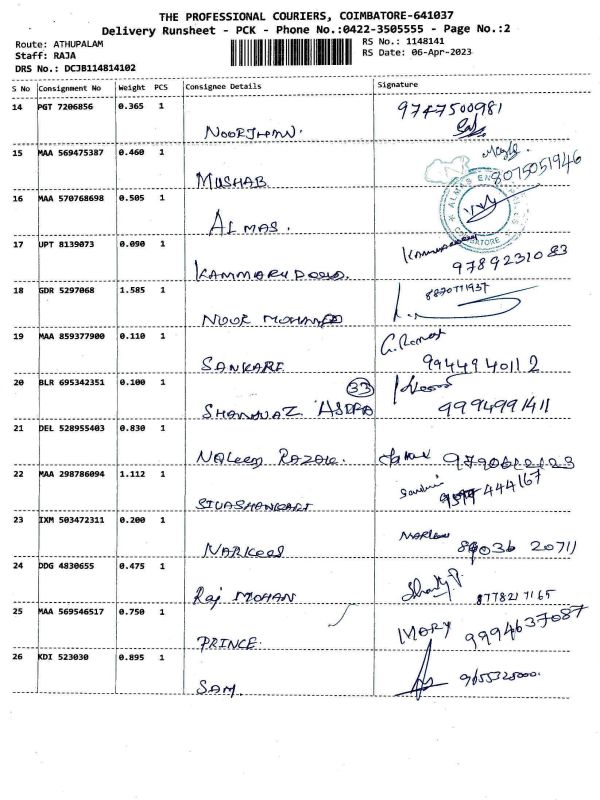 THE PROFESSIONAL COURIERS, COIMBATORE-641037
Delivery Runsheet - PCK - Phone No.:0422-3505555 - Page No.:2
Route: ATHUPALAM
RS No.: 1148141
Staff: RAJA
RS Date: 06-Apr-2023
DRS No.: DCJB114814102
S No Consignment No Weight PCS Consignee Details Signature
14 PGT 7206856 0.365 1 9747500981
NOORJHAN.
15 MAA 569475387 0.460 1 8075051946
MUSHAB
16 MAA 570768698 0.505 1 ALMAS COIMBATORE
ALMAS.
17 UPT 8139073 0.090 1
9789231083
18 GDR 5297068 1.585 1 8870771937
NOOR MOHAMED
19 MAA 859377900 0.110 1
SANKARI 9944940112
20 BLR 695342351 0.100 1 33
SHANVAZ 9994991411
21 DEL 528955403 0.830 1
22 MAA 298786094 1.112 1 444167
SIVASHANKARI
23 IXM 503472311 0.200 1
NARKEES 20711
24 DDG 4830655 0.475 1
Raj MOHAN
25 MAA 569546517 0.750 1 MARY 9994637087
PRINCE
26 KDI 523030 0.895 1 9655325000.
SAM.